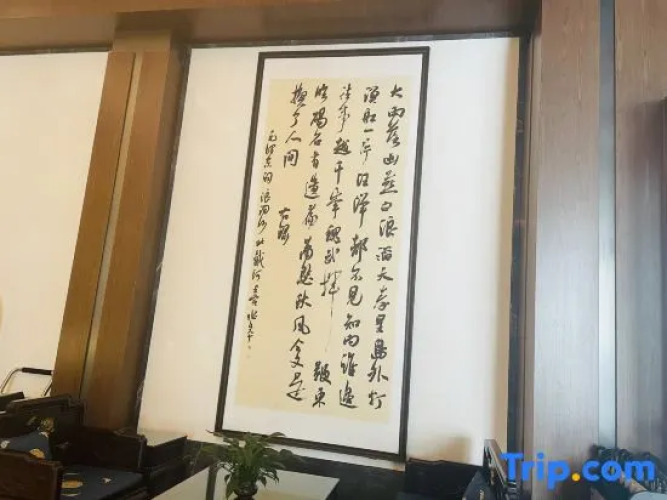 大雨落幽燕白浪滔天秦皇島外打
漁船一片汪洋都不見知向誰邊
往事越千年魏武揮鞭東
臨碣石有遺篇蕭瑟秋風今又是
換了人間
毛泽东词浪淘沙北戴河
Trip.com